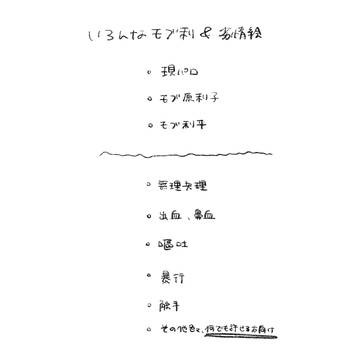 いろんなモブ利&劣情絵
・現パロ
・モブ原利子
・モブ利平
・無理矢理
・出血、鼻血
・嘔吐
・暴行
・触手
・その他色々、何でも許せる方向け